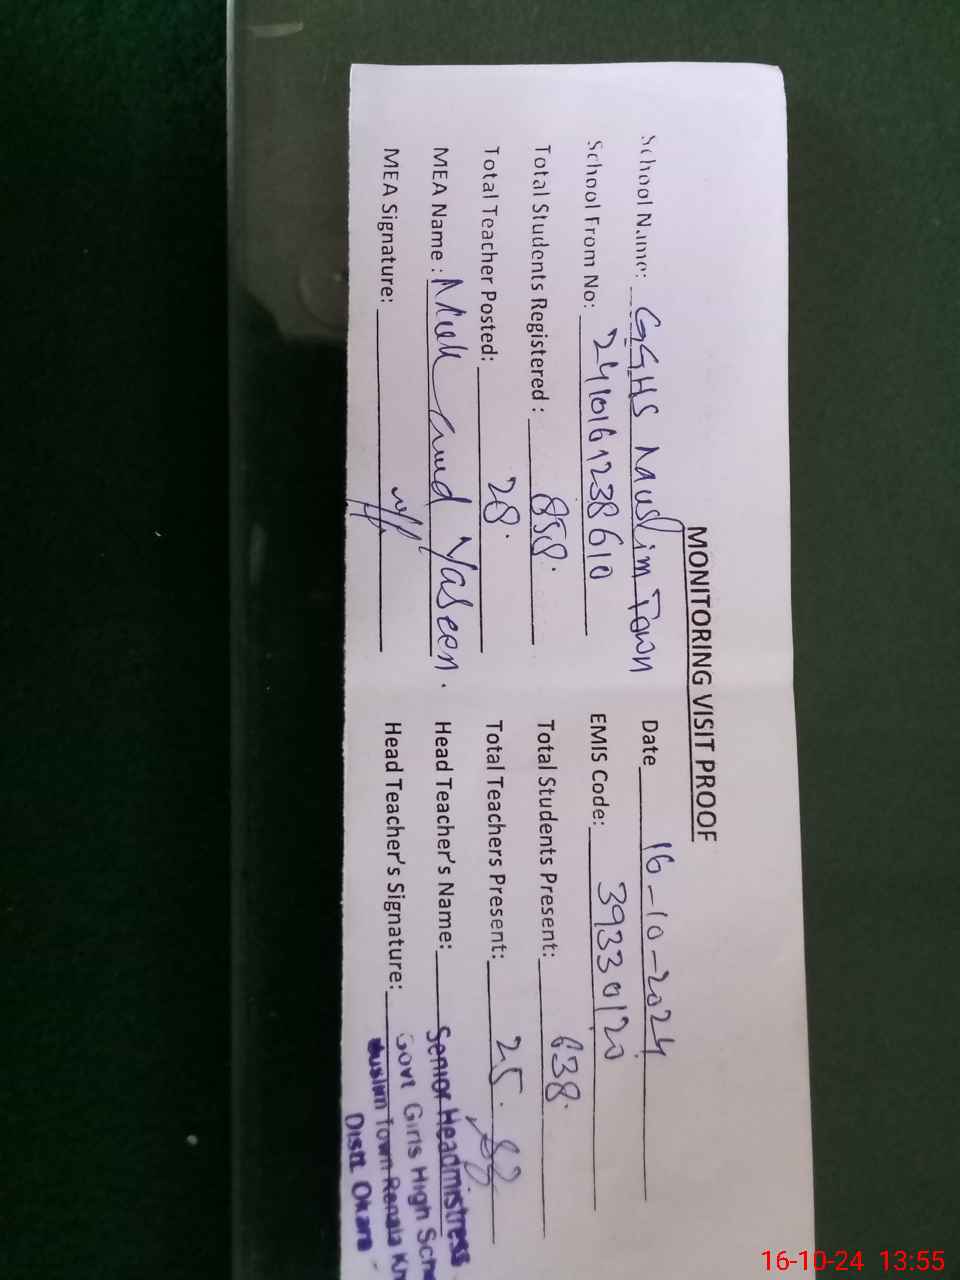 MONITORING VISIT PROOF
School Name: GGHS Muslim Town Date 16-10-2024
School From No: 2410161238610 EMIS Code: 39330120
Total Students Registered : 858. Total Students Present: 638.
Total Teacher Posted: 28. Total Teachers Present: 25.
MEA Name : Yaseen. Head Teacher's Name:
MEA Signature: Head Teacher's Signature:
Senior Headmistress
Govt Girls High Sch
Muslim Town Renala Kh
Distt Okara
16-10-24 13:55